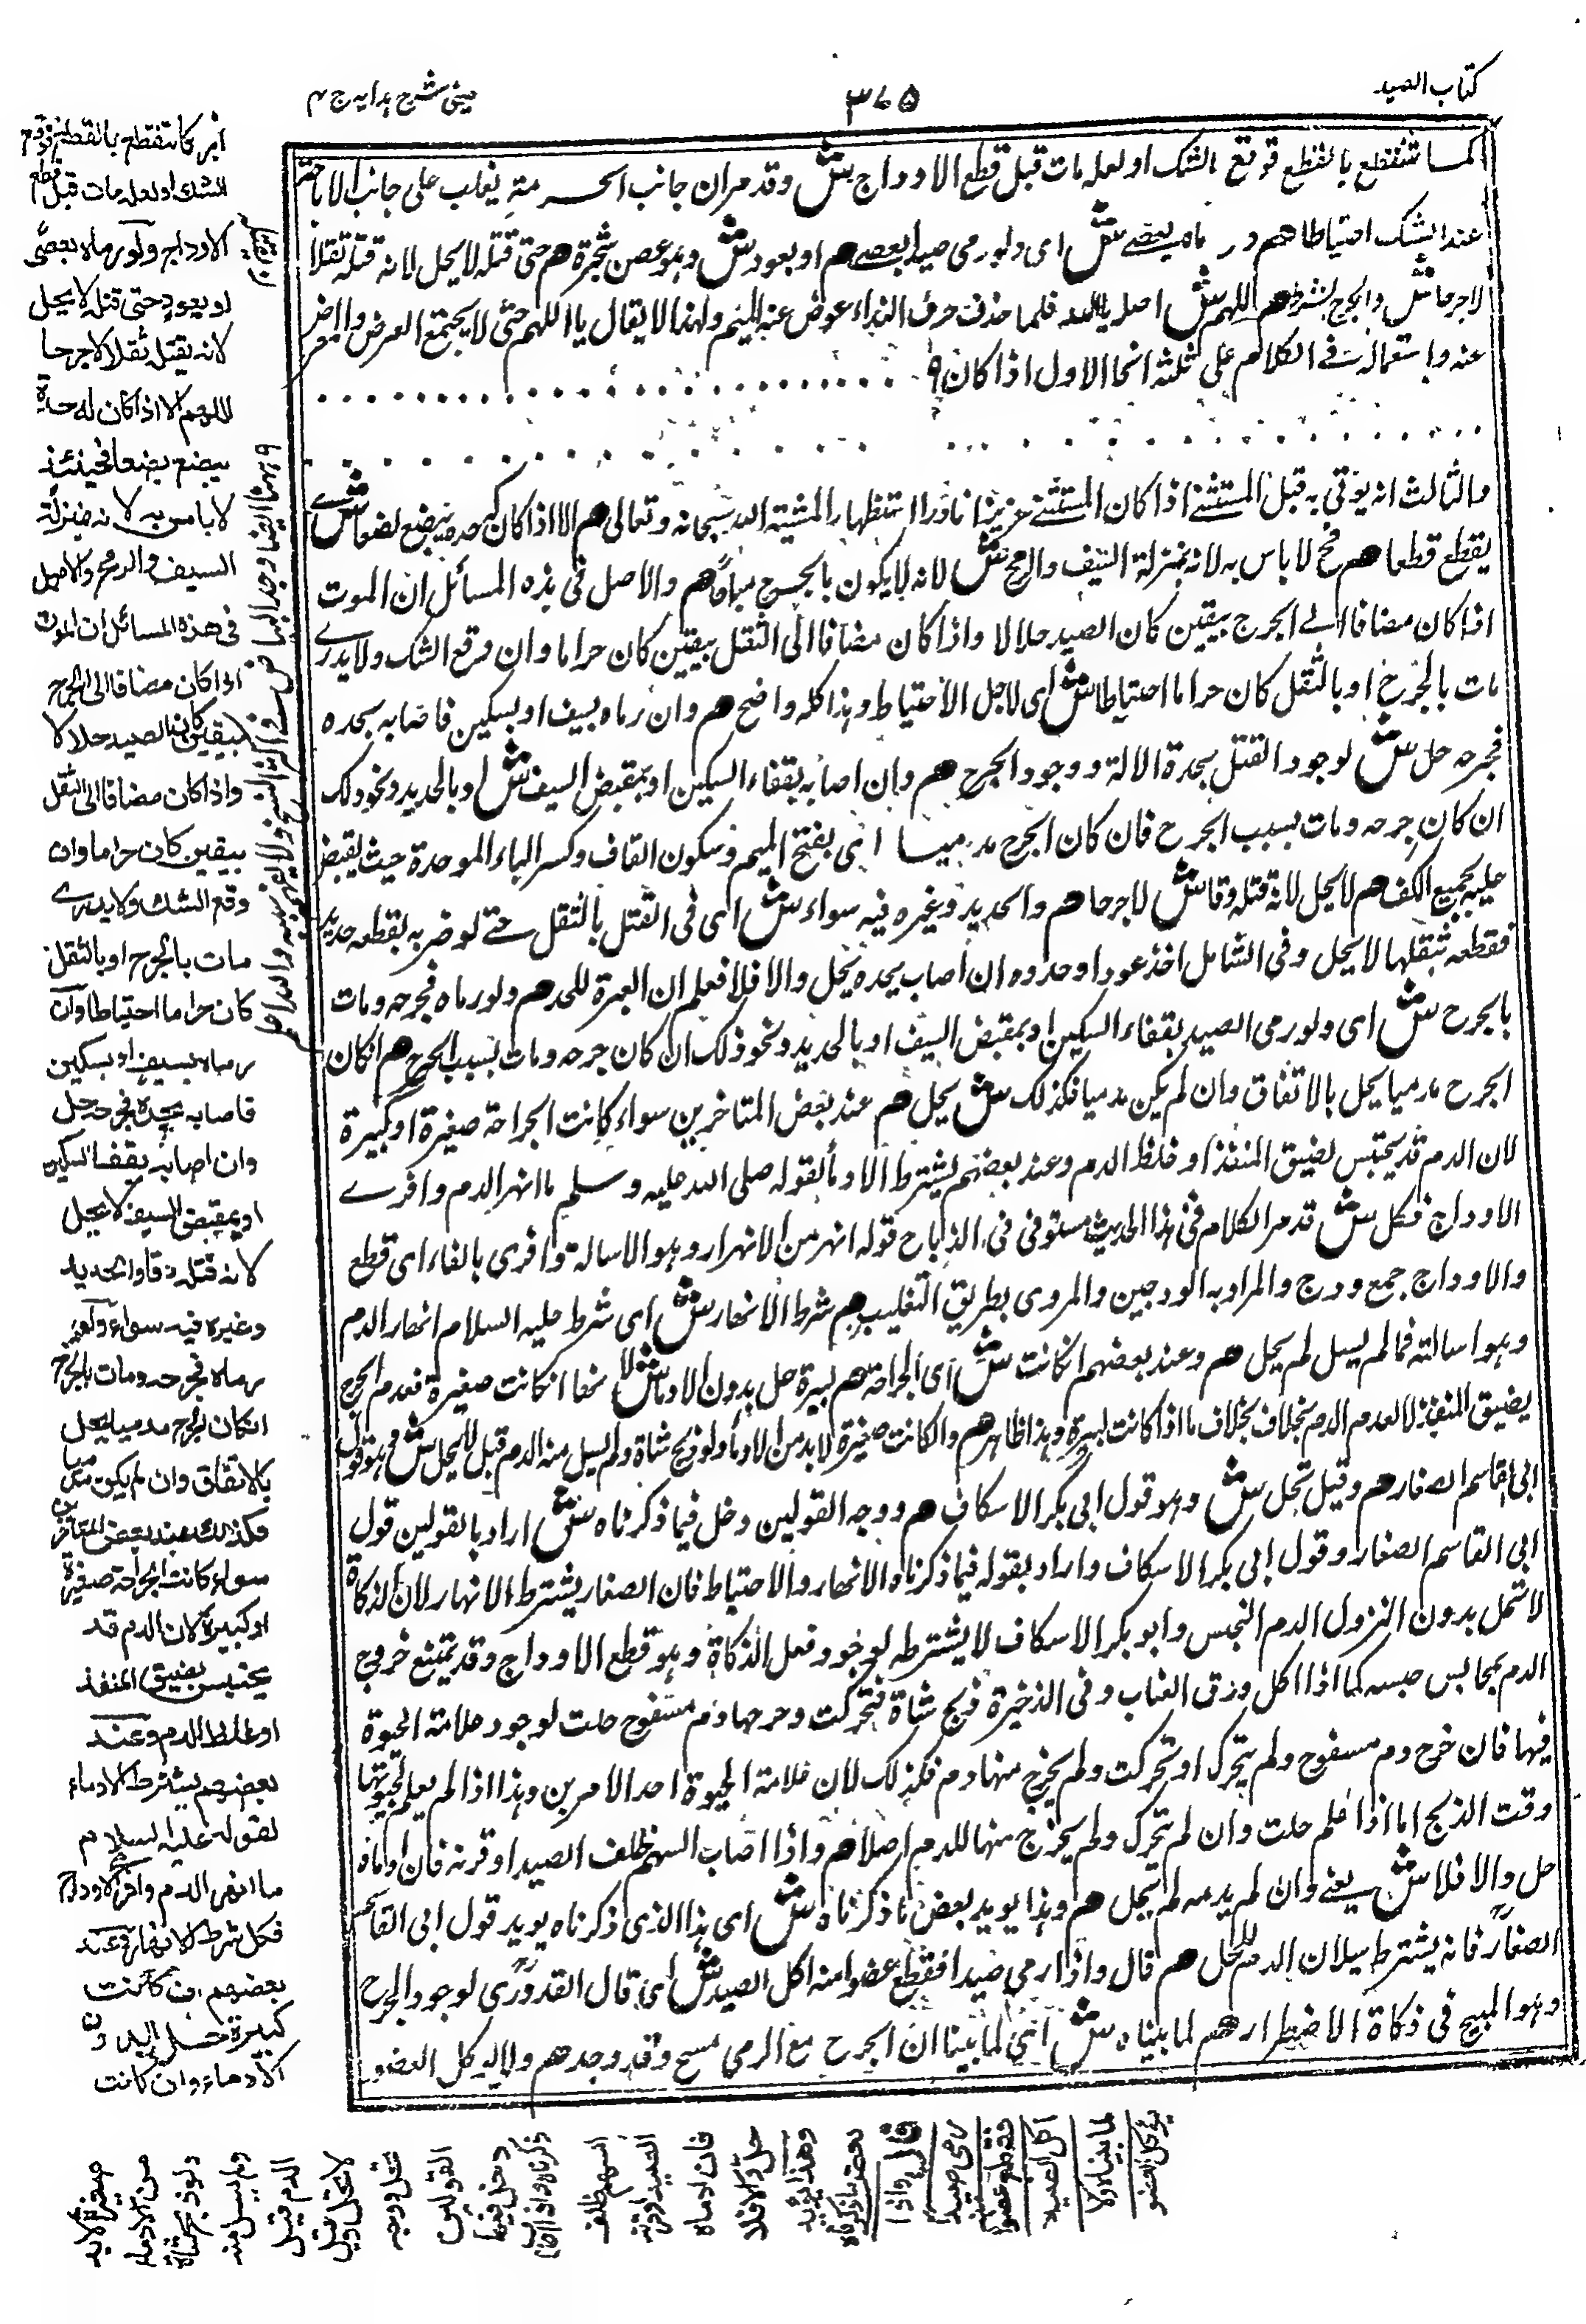 كتاب الصيد
٣٧٥
عينى شرح هدايه ج ٤
كما تنقطع بالقطع فوقع الشك او لعله مات قبل قطع الاوداج ش وقد مر ان جانب الحرمة يغلب على جانب الاباحة
عند الشك احتياطا هم ولو رماه بعصى ش اى ولو رمى صيدا بعصى هم او بعود ش وهو غصن شجرة هم حتى قتله لا يحل لانه قتله ثقلا
لا جرحا ش والجرح شرط هم اللهم ش اصله يا الله فلما حذفت حرف النداء عوض عنه الميم ولهذا لا يقال يا اللهم حتى لا يجتمع العوض والمعوض
عنه واستعماله فى الكلام على ثلثة انحا الاول اذا كان
والثالث انه يؤتى به قبل المستثنى اذا كان المستثنى عزيزا نادرا استظهارا لمشيته الله سبحانه وتعالى هم الا اذا كان له حدة يبضع بضعا ش اى
يقطع قطعا هم فح لا باس به لانه بمنزلة السيف والرمح ش لانه لا يكون بالجرح مباحا هم والاصل فى هذه المسائل ان الموت
اذا كان مضافا الى الجرح بيقين كان الصيد حلالا واذا كان مضافا الى الثقل بيقين كان حراما وان وقع الشك ولا يدرى
مات بالجرح او بالثقل كان حراما احتياطا ش اى لاجل الاحتياط وهذا كله واضح هم وان رماه بسيف او بسكين فاصابه بحده
فجرحه حل ش لوجود القتل بحدة الالة ووجود الجرح هم وان اصابه بقفاء السكين او بمقبض السيف ش او بالحديد ونحو ذلك
ان كان جرحه ومات بسبب الجرح فان كان الجرح مدميا اى بفتح الميم وسكون القاف وكسر الباء الموحدة حيث يقبض
عليه بجميع الكف هم لا يحل لانه قتله دقا ش لا جرحا هم والحديد وغيره فيه سواء ش اى فى القتل بالثقل حتى لو ضربه بقطعة حديد
فقطعه بثقلها لا يحل وفى الشامل اخذ عودا وحدده ان اصاب بحده يحل والا فلا فعلم ان العبرة للحد هم ولو رماه فجرحه ومات
بالجرح ش اى ولو رمى الصيد بقفاء السكين او بمقبض السيف او بالحديد ونحو ذلك ان كان جرحه ومات بسبب الجرح هم ان كان
الجرح مدميا يحل بالاتفاق وان لم يكن مدميا فكذلك ش يحل هم عند بعض المتاخرين سواء كانت الجراحة صغيرة او كبيرة
لان الدم قد يحتبس لضيق المنفذ او غلظ الدم وعند بعضهم يشترط الادماء لقوله صلى الله عليه وسلم ما انهر الدم وافرى
الاوداج فكل ش قد مر الكلام فى هذا الحديث مستوفى فى الذبائح قوله انهر من الانهار وهو الاسالة وافرى بالفاء اى قطع
والاوداج جمع ودج والمراد به الودجين والمروى بطريق التغليب هم شرط الانهار ش اى شرط عليه السلام انهار الدم
وهو اسالته فما لم يسل لم يحل هم وعند بعضهم ان كانت ش اى الجراحة هم كبيرة حل بدون الادماء ش ان كانت صغيرة فعدم الجرح
بضيق المنفذ لا لعدم الدم بخلاف ما اذا كانت كبيرة وهذا ظاهر هم وان كانت صغيرة لا بد من الادماء ولو ذبح شاة ولم يسل منه الدم قيل لا يحل ش وهو قول
ابى القاسم الصفار هم وقيل تحل ش وهو قول ابى بكر الاسكاف هم ووجه القولين دخل فيما ذكرناه ش اراد بالقولين قول
ابى القاسم الصفار وقول ابى بكر الاسكاف واراد بقوله فيما ذكرناه الانهار والاحتياط فان الصفار يشترط الانهار لان الذكاة
لا تحل بدون النزول الدم النجس وابو بكر الاسكاف لا يشترطه لوجود فعل الذكاة وهو قطع الاوداج وقد يمتنع خروج
الدم بحابس حبسه كما اذا اكل ورق العناب وفى الذخيرة ذبح شاة فتحركت وخرج منها دم مسفوح حلت لوجود علامة الحيوة
فيها فان خرج دم مسفوح ولم يتحرك او تحركت ولم يخرج منها دم فكذلك لان علامة الحيوة احد الامرين وهذا اذا لم يعلم بحيوتها
وقت الذبح اما اذا علم حلت وان لم تتحرك ولم يخرج منها الدم اصلا هم واذا اصاب السهم ظلف الصيد او قرنه فان ادماه
حل والا فلا ش يعنى وان لم يدمه لم يحل هم وهذا يويد بعض ما ذكرناه ش اى هذا الذى ذكرناه يويد قول ابى القاسم
الصفار فانه يشترط سيلان الدم للحل هم قال واذا رمى صيدا فقطع عضوا منه اكل الصيد ش اى قال القدورى لوجود الجرح
وهو المبيح فى ذكاة الاضطرار هم لما بيناه ش اى لما بينا ان الجرح مع الرمى مبيح وقد وجد هم ولا يوكل العضو
كما تنقطع بالقطع فوقع
الشك او لعله مات قبل قطع
الاوداج ولو رماه بعصى
او بعود حتى قتله لا يحل
لانه يقتل ثقلا لا جرحا
اللهم الا اذا كان له حدة
يبضع بضعا فحينئذ
لا باس به لانه بمنزلة
السيف والرمح والاصل
فى هذه المسائل ان الموت
اذا كان مضافا الى الجرح
بيقين كان الصيد حلالا
واذا كان مضافا الى الثقل
بيقين كان حراما وان
وقع الشك ولا يدرى
مات بالجرح او بالثقل
كان حراما احتياطا وان
رماه بسيف او بسكين
فاصابه بحده فجرحه حل
وان اصابه بقفا السكين
او بمقبض السيف لا يحل
لانه قتله دقا والحديد
وغيره فيه سواء ولو
رماه فجرحه ومات بالجرح
ان كان الجرح مدميا يحل
بالاتفاق وان لم يكن مدميا
فكذلك عند بعض المتاخرين
سواء كانت الجراحة صغيرة
او كبيرة لان الدم قد
يحتبس بضيق المنفذ
او غلظ الدم وعند
بعضهم يشترط الادماء
لقوله عليه السلام
ما انهر الدم وافرى الاوداج
فكل شرط الانهار وعند
بعضهم ان كانت
كبيرة حل بدون
الادماء وان كانت
صغيرة لا بد
من الادماء
ولو ذبح شاة
ولم يسل منه
الدم قيل
لا تحل وقيل
تحل ووجه
القولين
دخل فيما
ذكرناه واذا اصاب
السهم ظلف
الصيد او قرنه
فان ادماه
حل والا فلا
وهذا يويد
بعض ما ذكرناه
قال واذا
رمى صيدا
فقطع عضوا
اكل الصيد
لما بيناه ولا
يوكل العضو